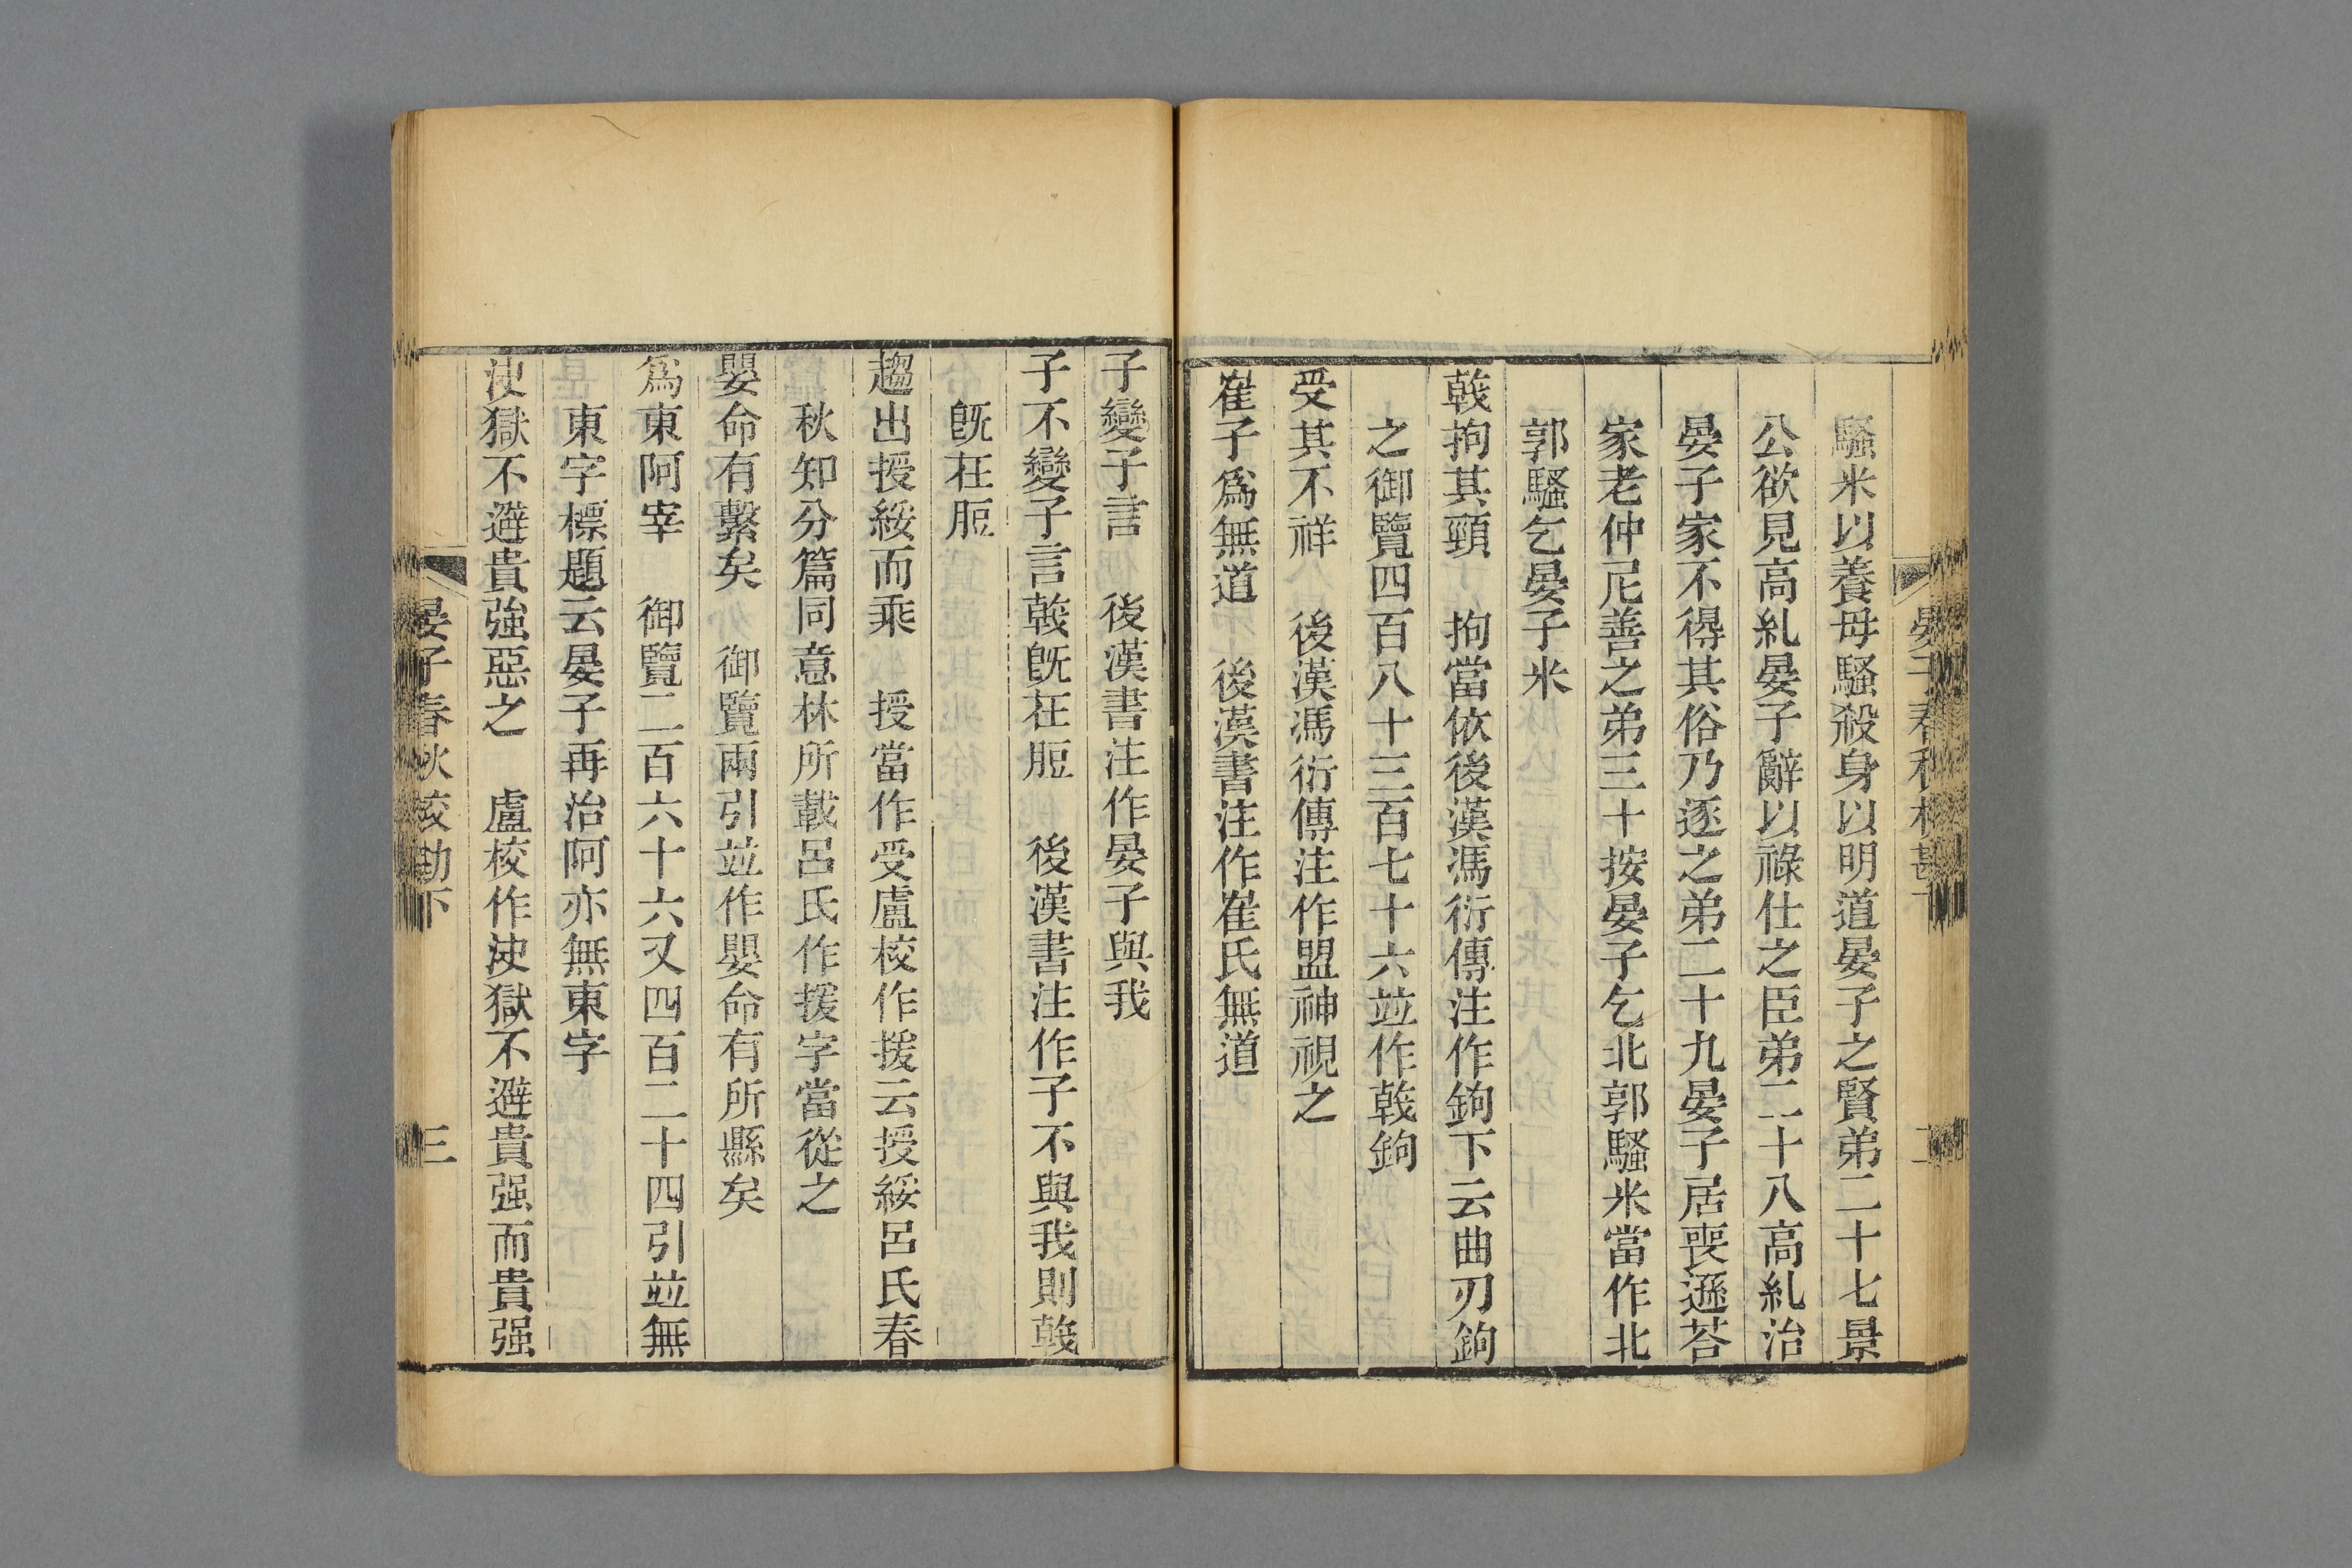 騷米以養母騷殺身以明道晏子之賢弟二十七景
公欲見高糺晏子辭以祿仕之臣弟二十八高糺治
晏子家不得其俗乃逐之弟二十九晏子居喪遜荅
家老仲尼善之弟三十按晏子乞北郭騷米當作北
郭騷乞晏子米
戟拘其頸　拘當依後漢馮衍傳注作鉤下云曲刃鉤
之御覽四百八十三百七十六並作戟鉤
受其不祥　後漢馮衍傳注作盟神視之
崔子爲無道　後漢書注作崔氏無道
子變子言　後漢書注作晏子與我
子不變子言戟旣在脰　後漢書注作子不與我則戟
旣在脰
趨出授綏而乘　授當作受盧校作援云授綏呂氏春
秋知分篇同意林所載呂氏作援字當從之
嬰命有繫矣　御覽兩引並作嬰命有所縣矣
爲東阿宰　御覽二百六十六又四百二十四引並無
東字標題云晏子再治阿亦無東字
決獄不避貴強惡之　盧校作決獄不避貴强而貴强
晏子春秋校勘下　三